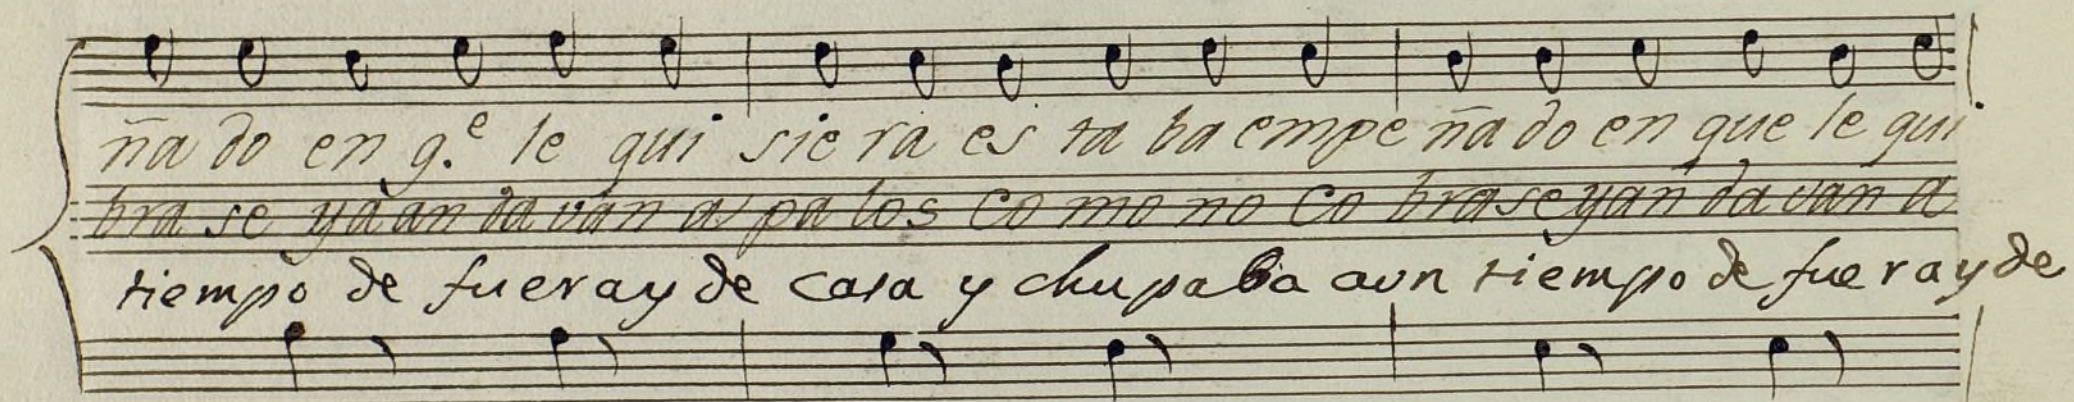 ña do en q.e le qui sie ra es ta ba empe ña do en que le qui
bra se yà an da van a pa los co mo no co bra se yan da van a
tiempo de fueray de casa y chupaba aun tiempo de fue ra y de